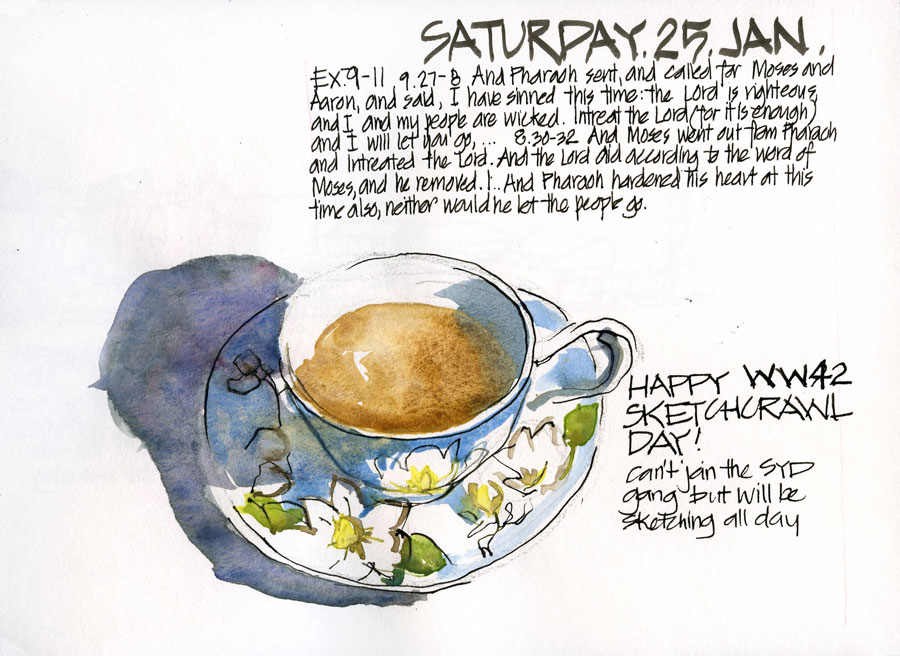 SATURDAY. 25. JAN.
EX. 9-11 9.27-8 And Pharaoh sent, and called for Moses and
Aaron, and said, I have sinned this time: the Lord is righteous,
and I and my people are wicked. Intreat the Lord (for it is enough)
and I will let you go, ... 8.30-32 And Moses went out from Pharaoh
and intreated the Lord. And the Lord did according to the word of
Moses, and he removed. !.. And Pharaoh hardened his heart at this
time also, neither would he let the people go.
HAPPY WW42
SKETCHCRAWL
DAY!
can't join the SYD
gang but will be
sketching all day